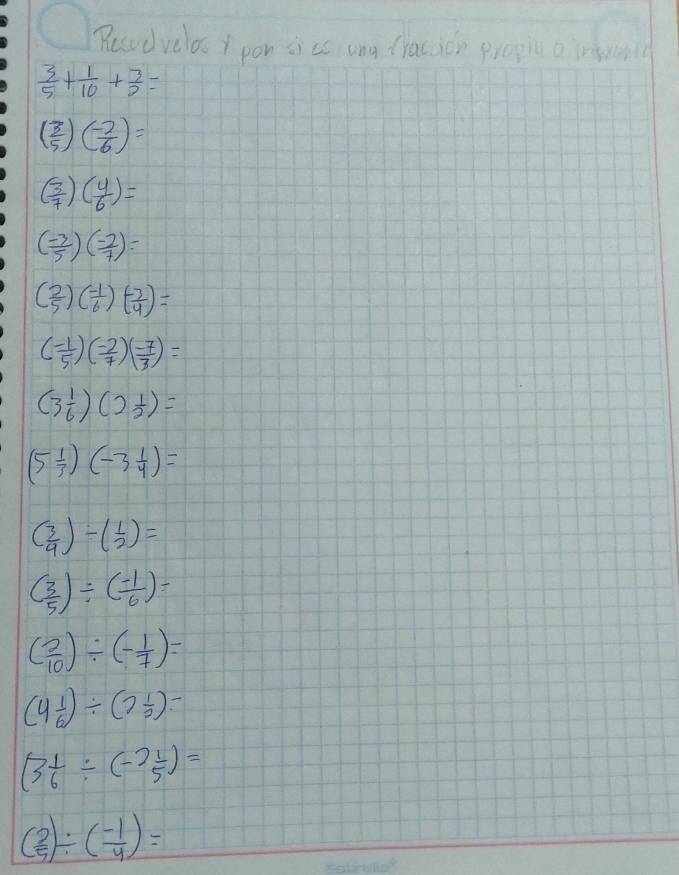 Resuelvelos y pon si es una fracción propia o impropia
3/5 + 1/10 + 3/2 =
(3/5) (-2/6) =
(3/7) (4/6) =
(-3/5) (-2/7) =
(2/5) (-1/6) (-3/4) =
(-1/5) (-2/7) (-7/3) =
(3 1/6) (2 1/2) =
(5 1/3) (-3 1/4) =
(3/4) ÷ (1/2) =
(3/5) ÷ (-1/6) =
(2/10) ÷ (-1/7) =
(4 1/6) ÷ (2 1/2) =
(3 1/6 ÷ (-2 1/5) =
(2/5) ÷ (-1/4) =